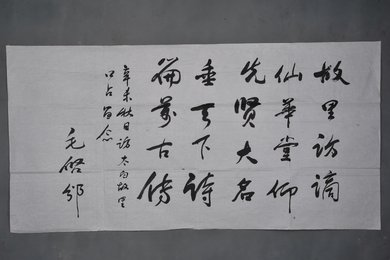 故里访谪
仙华堂仰
先贤大名
垂天下诗
篇万古传
辛未秋日访太白故里
口占留念
毛啓邠